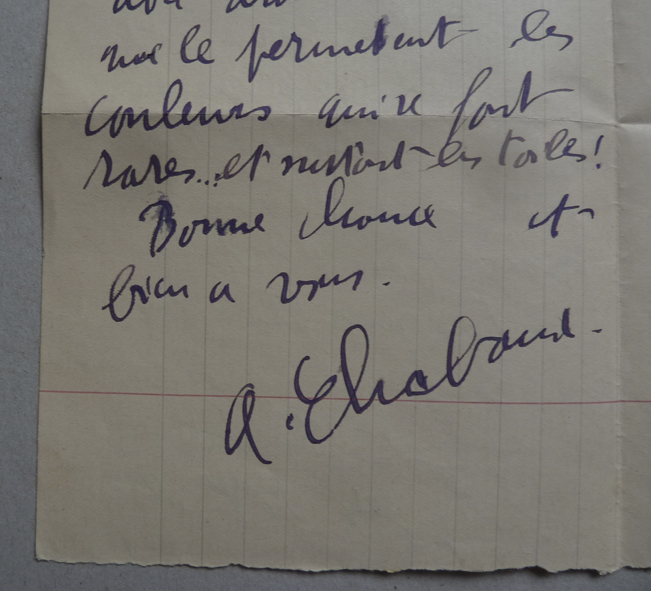 me le permettent les
couleurs qui se font
rares... et surtout les toiles!
Bonne chance et
bien a vous.
A. Chabaud.